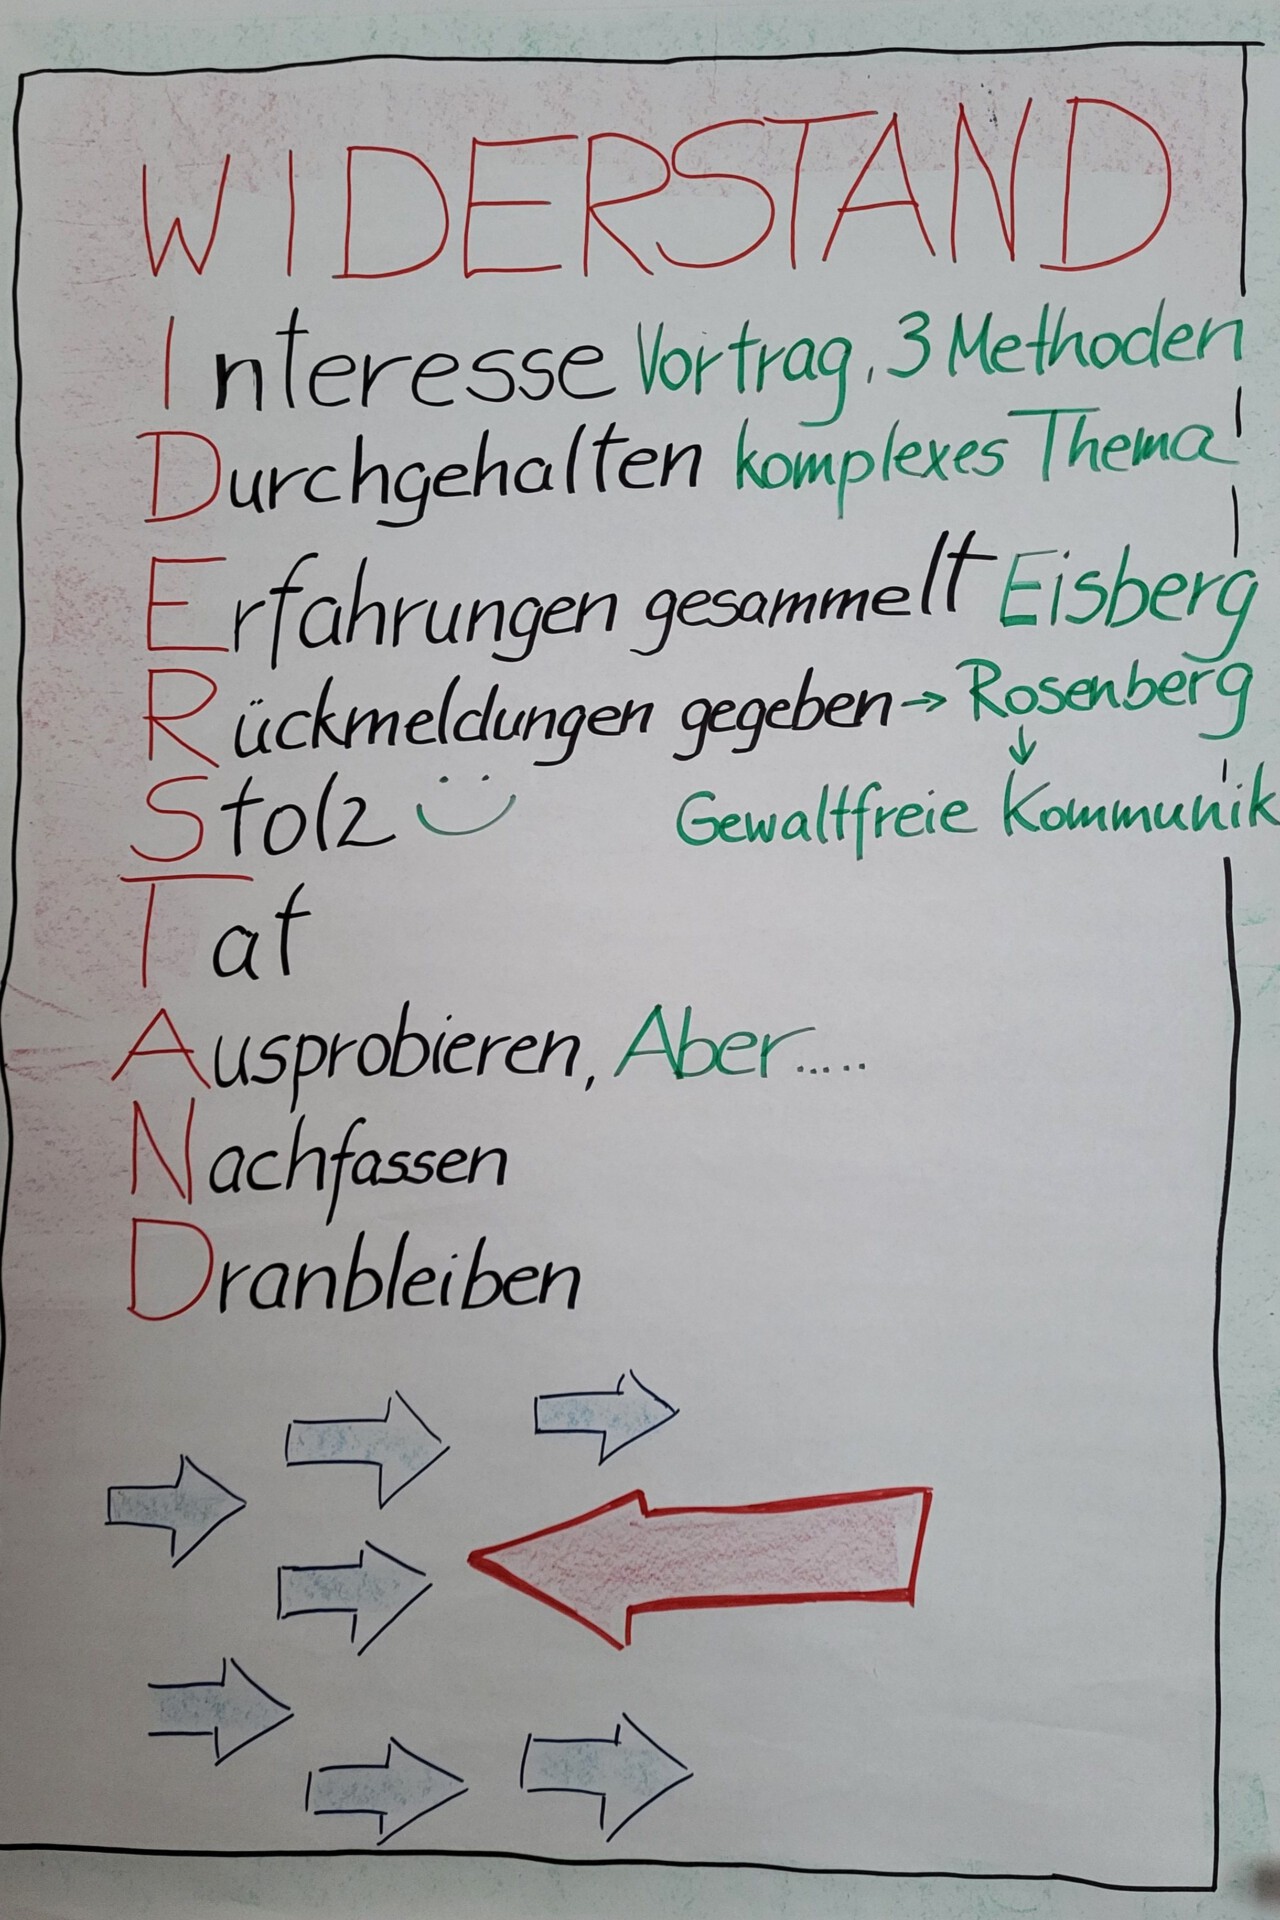 WIDERSTAND
Interesse Vortrag, 3 Methoden
Durchgehalten komplexes Thema
Erfahrungen gesammelt Eisberg
Rückmeldungen gegeben → Rosenberg
↓
Stolz Gewaltfreie Kommunik
Tat
Ausprobieren, Aber.....
Nachfassen
Dranbleiben